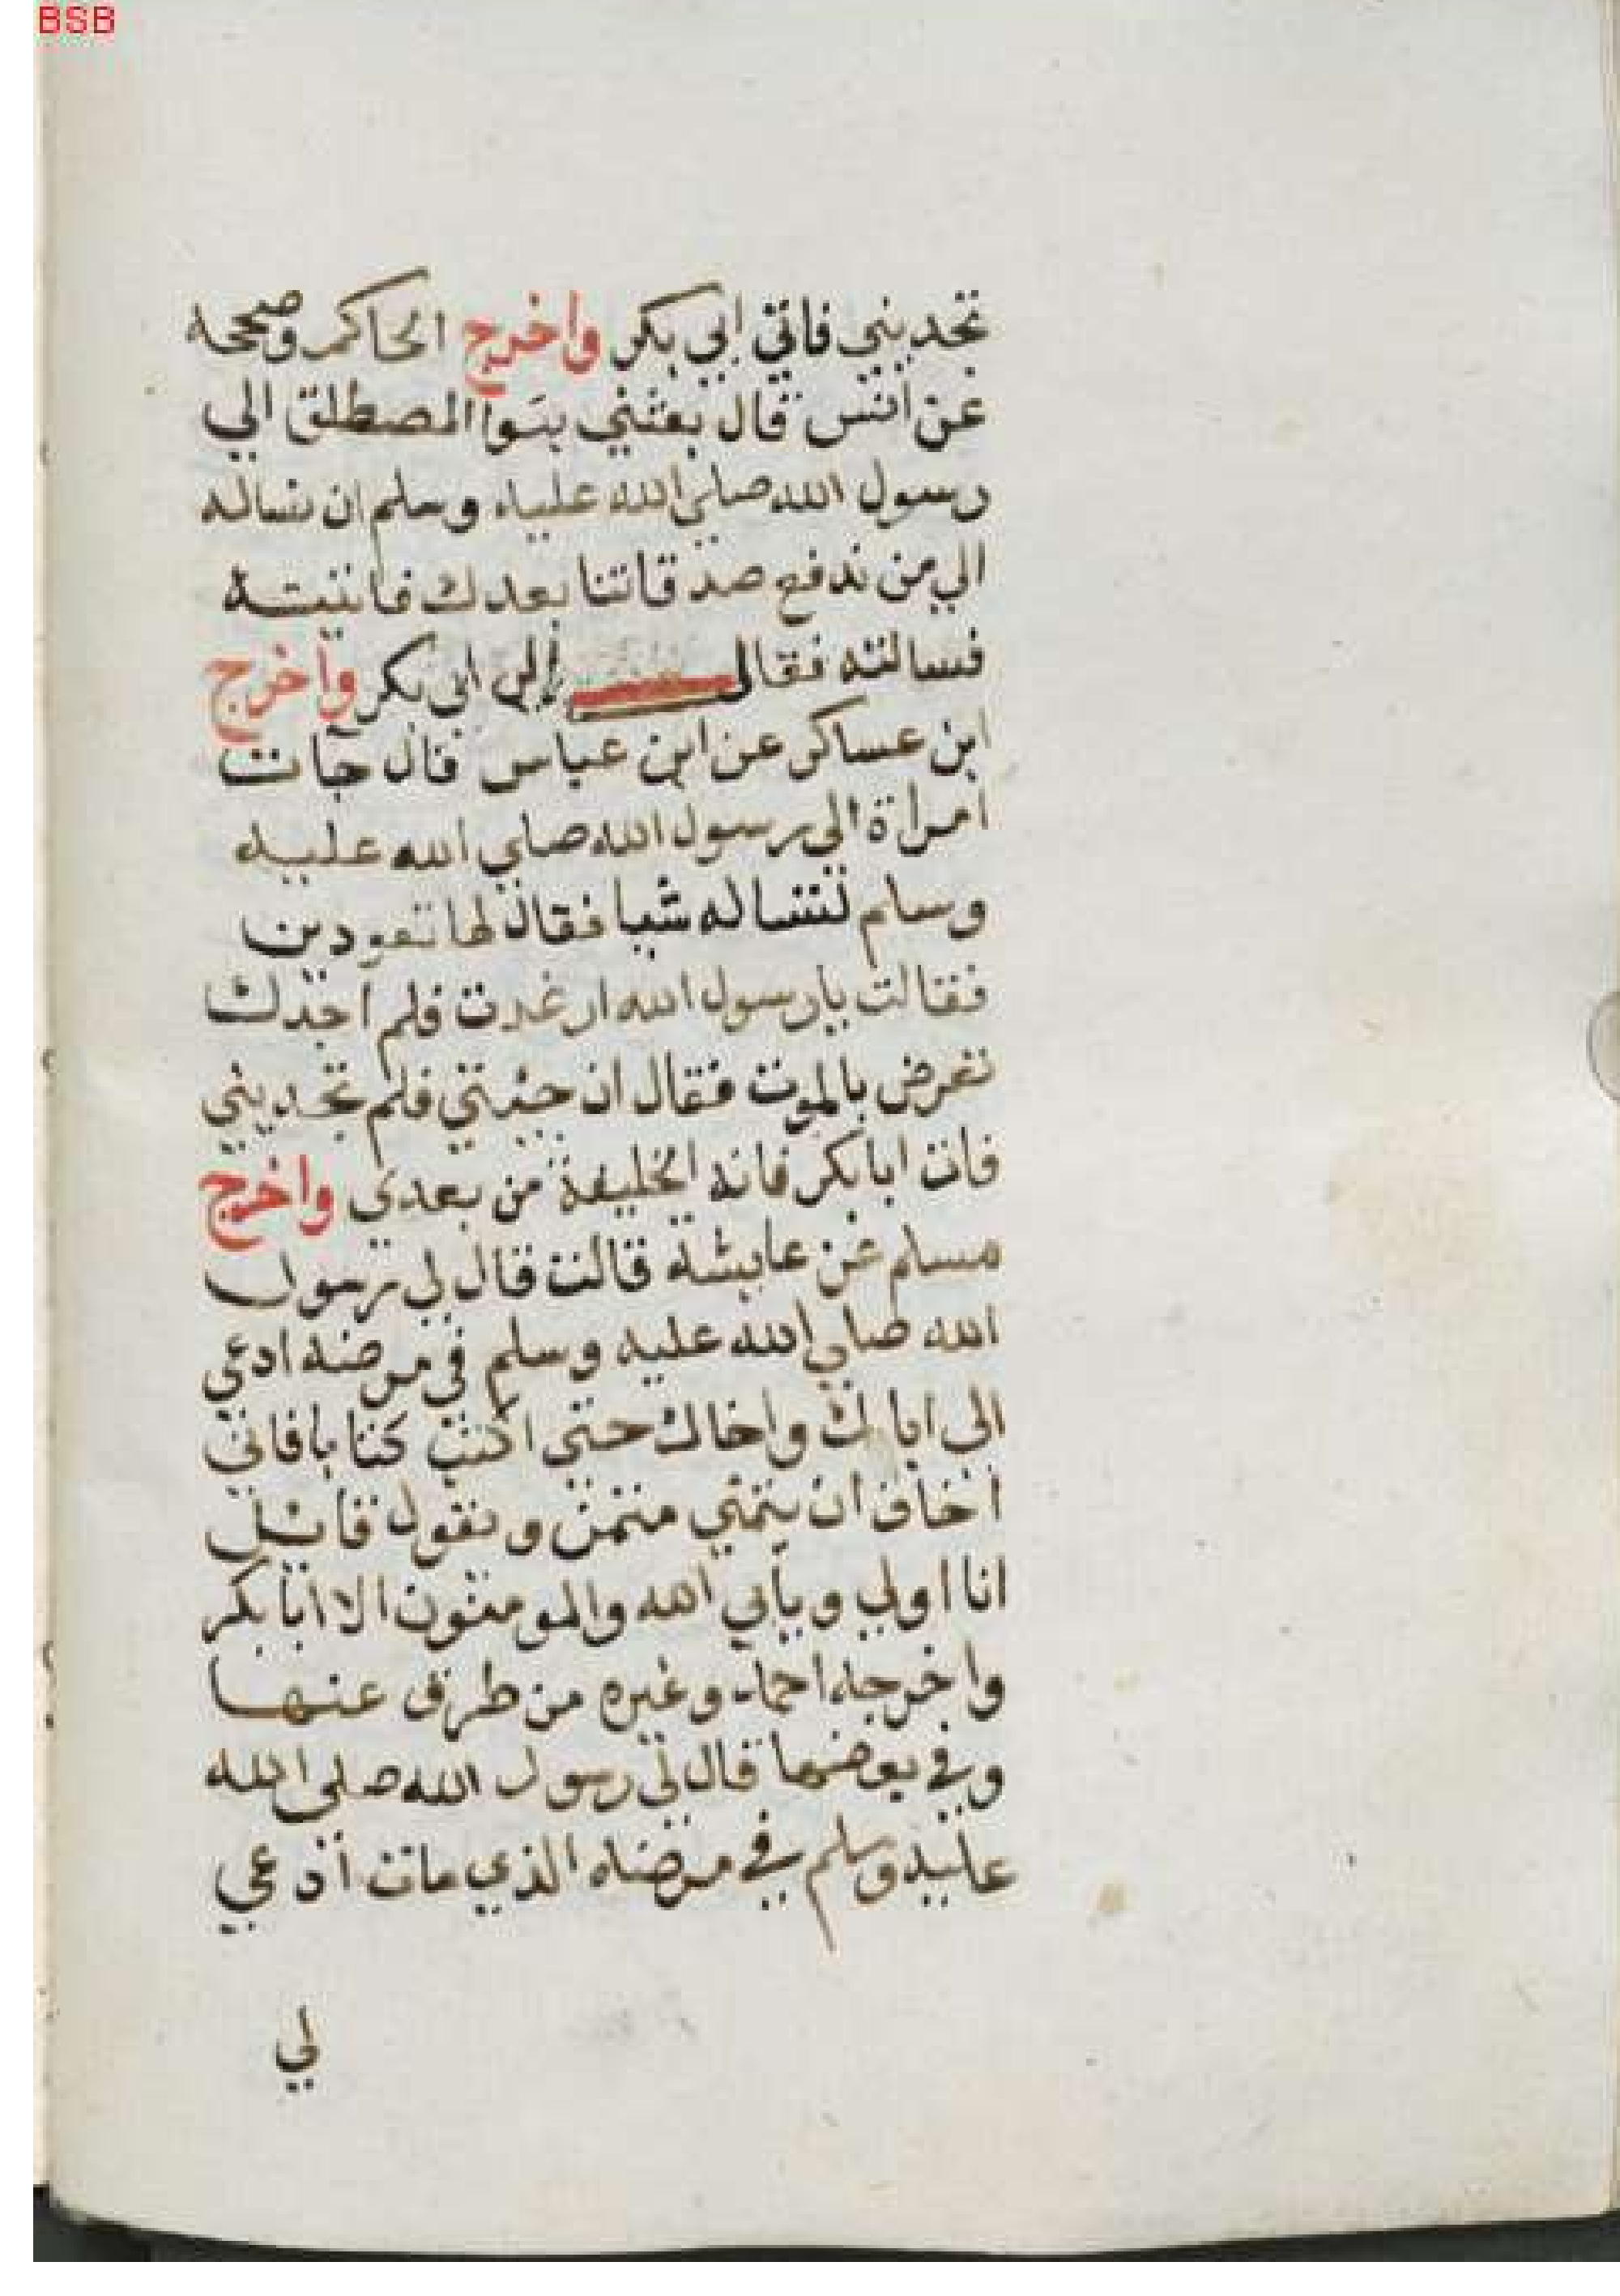 BSB
تجديني فاتي ابي بكر واخرج الحاكم وصححه
عن انس قال بعثني بنوا المصطلق الي
رسول الله صلي الله عليه وسلم ان نساله
الي من ندفع صدقاتنا بعدك فاتيته
فسالته فقال الي ابي بكر واخرج
ابن عساكر عن ابن عباس قال جآت
امراة الى رسول الله صلي الله عليه
وسلم تساله شيا فقال لها تعودين
فقالت يا رسول الله ان عدت فلم اجدك
تعرض بالموت فقال ان جئتي فلم تجديني
فات ابا بكر فانه الخليفة من بعدي واخرج
مسلم عن عايشة قالت قال لي رسول
الله صلي الله عليه وسلم في مرضه ادعي
الى اباك واخاك حتي اكتب كتابا فاني
اخاف ان يتمني متمن ويقول قائل
انا اولي ويأبي الله والمومنون الا ابا بكر
واخرجه احمد وغيره من طرق عنها
وفي بعضها قال لي رسول الله صلى الله
عليه وسلم في مرضه الذي مات ادعي
لي